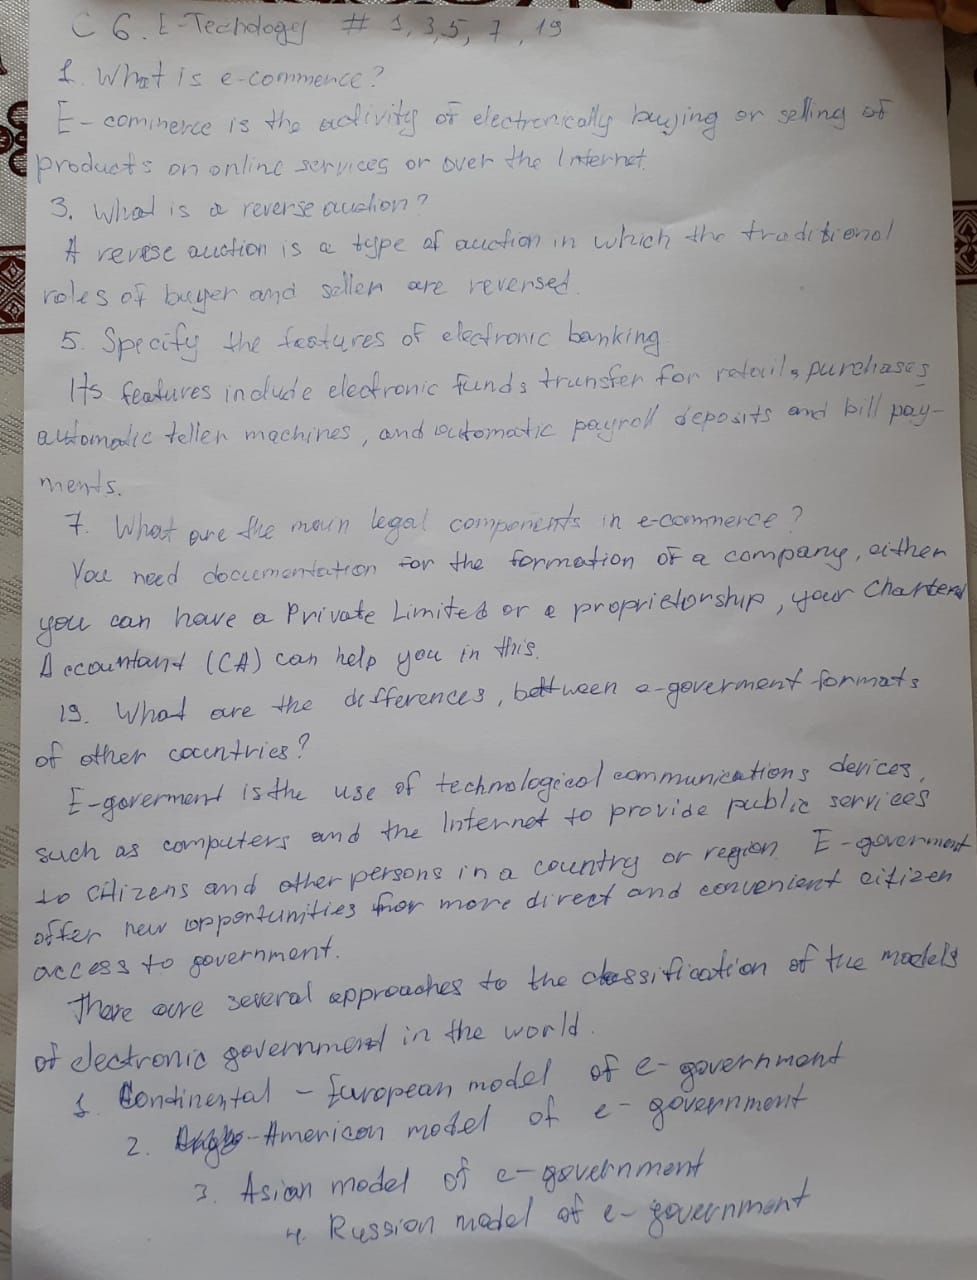 C 6. E-Techdology # 1, 3, 5, 7, 19
1. What is e-commence?
E-commerce is the activity of electronically buying or selling of
products on online services or over the Internet.
3. What is a reverse auction?
A revese auction is a type of auction in which the traditional
roles of buyer and seller are reversed.
5. Specify the features of electronic banking
Its features include electronic funds transfer for retail, purchases
automatic teller machines, and automatic payroll deposits and bill pay-
ments.
7. What are the main legal components in e-commerce?
You need documentation for the formation of a company, either
you can have a Private Limited or a proprietorship, your Charterd
Accountant (CA) can help you in this.
19. What are the differences, between e-goverment formats
of other countries?
E-goverment is the use of technological communications devices,
such as computers and the Internet to provide public services
to citizens and other persons in a country or region. E-goverment
offer new opportunities for more direct and convenient citizen
access to government.
There are several approaches to the classification of the models
of electronic government in the world.
1. Continental - European model of e-government
2. Anglo-American model of e-government
3. Asian model of e-government
4. Russion model of e-government